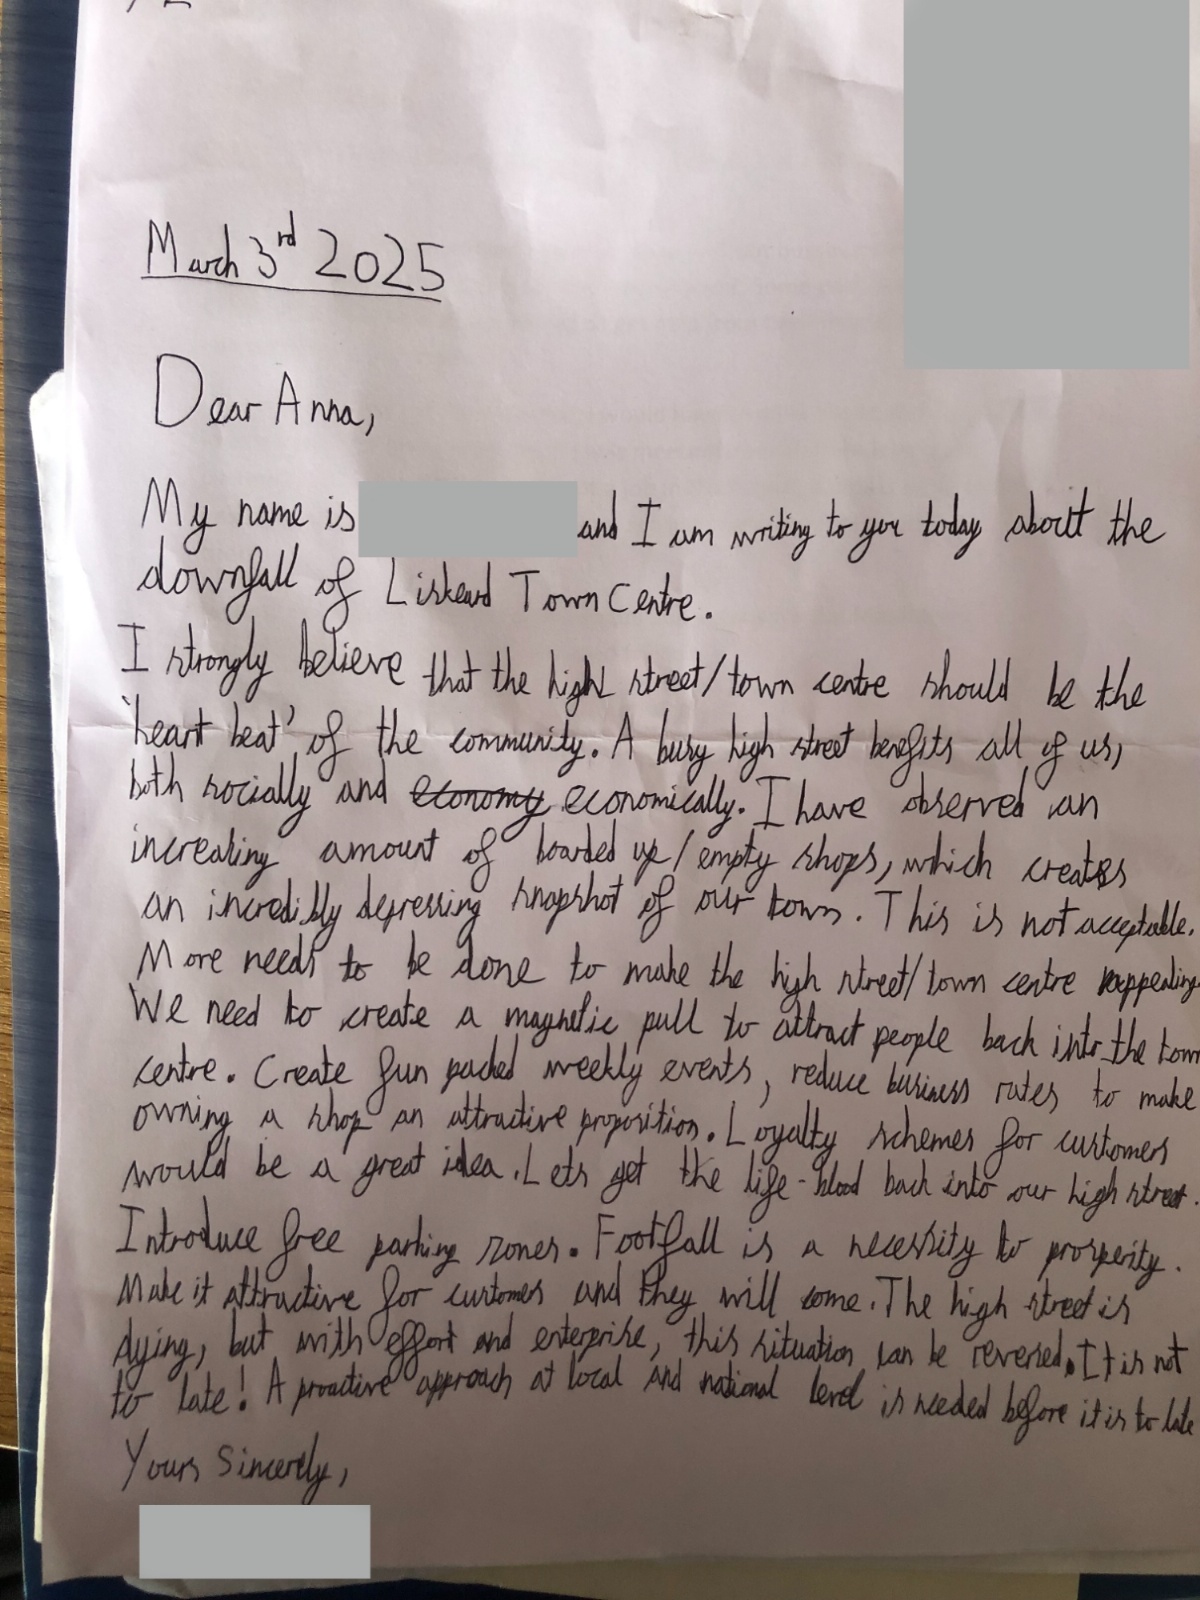 March 3rd 2025
Dear Anna,
My name is and I am writing to you today about the
downfall of Liskeard Town Centre.
I strongly believe that the high street/town centre should be the
'heart beat' of the community. A busy high street benefits all of us,
both socially and economy economically. I have observed an
increasing amount of boarded up/empty shops, which creates
an incredibly depressing snapshot of our town. This is not acceptable.
More needs to be done to make the high street/town centre appealing.
We need to create a magnetic pull to attract people back into the town
centre. Create fun packed weekly events, reduce business rates to make
owning a shop an attractive proposition. Loyalty schemes for customers
would be a great idea. Lets get the life-blood back into our high street.
Introduce free parking zones. Footfall is a necessity to prosperity.
Make it attractive for customers and they will come. The high street is
dying, but with effort and enterprise, this situation can be reversed. It is not
to late! A proactive approach at local and national level is needed before it is to late
Yours Sincerely,